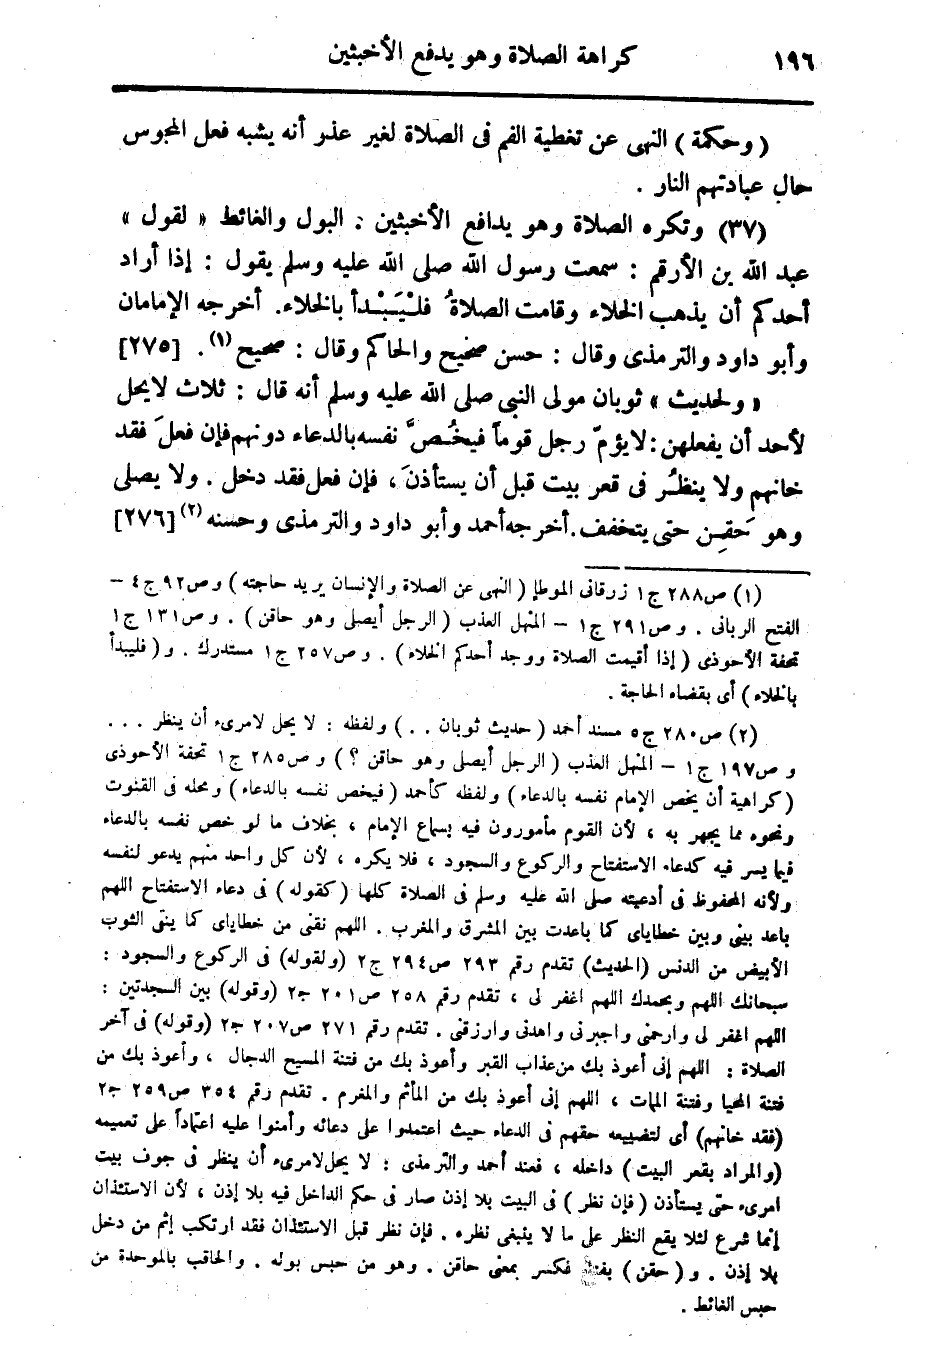 ١٩٦ كراهة الصلاة وهو يدفع الأخبثين
( وحكمة ) النهى عن تغطية الفم فى الصلاة لغير عذر أنه يشبه فعل المجوس
حال عبادتهم النار .
(٣٧) وتكره الصلاة وهو يدافع الأخبثين : البول والغائط « لقول »
عبد الله بن الأرقم : سمعت رسول الله صلى الله عليه وسلم يقول : إذا أراد
أحدكم أن يذهب الخلاء وقامت الصلاةُ فلْيَبْدأ بالخلاء. أخرجه الإمامان
وأبو داود والترمذى وقال : حسن صحيح والحاكم وقال : صحيح (١) . [٢٧٥]
« ولحديث » ثوبان مولى النبى صلى الله عليه وسلم أنه قال : ثلاث لا يحل
لأحد أن يفعلهن : لا يؤمّ رجل قوماً فيخُصَّ نفسه بالدعاء دونهم فإن فعلَ فقد
خانهم ولا ينظُر فى قعر بيت قبل أن يستأذنَ ، فإن فعل فقد دخل . ولا يصلى
وهو حَقِن حتى يتخفف . أخرجه أحمد وأبو داود والترمذى وحسنه (٢) [٢٧٦]
(١) ص ٢٨٨ ج ١ زرقانى الموطإ ( النهى عن الصلاة والإنسان يريد حاجته ) وص ٩٢ ج ٤ –
الفتح الربانى . وص ٢٩١ ج ١ – المنهل العذب ( الرجل أيصلى وهو حاقن ) . وص ١٣١ ج ١
تحفة الأحوذى ( إذا أقيمت الصلاة ووجد أحدكم الخلاء ) . وص ٢٥٧ ج ١ مستدرك . و ( فليبدأ
بالخلاء ) أى بقضاء الحاجة .
(٢) ص ٢٨٠ ج ٥ مسند أحمد ( حديث ثوبان . . ) ولفظه : لا يحل لامرىء أن ينظر . . .
و ص ١٩٧ ج ١ – المنهل العذب ( الرجل أيصلى وهو حاقن ؟ ) وص ٢٨٥ ج ١ تحفة الأحوذى
( كراهية أن يخص الإمام نفسه بالدعاء ) ولفظه كأحمد ( فيخص نفسه بالدعاء ) ومحله فى القنوت
ونحوه مما يجهر به ، لأن القوم مأمورون فيه بسماع الإمام ، بخلاف ما لو خص نفسه بالدعاء
فيما يسر فيه كدعاء الاستفتاح والركوع والسجود ، فلا يكره ، لأن كل واحد منهم يدعو لنفسه
ولأنه المحفوظ فى أدعيته صلى الله عليه وسلم فى الصلاة كلها ( كقوله ) فى دعاء الاستفتاح اللهم
باعد بينى وبين خطاياى كما باعدت بين المشرق والمغرب . اللهم نقنى من خطاياى كما ينقى الثوب
الأبيض من الدنس (الحديث) تقدم رقم ٢٩٣ ص ٢٩٤ ج ٢ (ولقوله) فى الركوع والسجود :
سبحانك اللهم وبحمدك اللهم اغفر لى ، تقدم رقم ٢٥٨ ص ٢٠١ ج ٢ (وقوله) بين السجدتين :
اللهم اغفر لى وارحمنى واجبرنى واهدنى وارزقنى . تقدم رقم ٢٧١ ص ٢٠٧ ج ٢ (وقوله) فى آخر
الصلاة : اللهم إنى أعوذ بك من عذاب القبر وأعوذ بك من فتنة المسيح الدجال ، وأعوذ بك من
فتنة المحيا وفتنة الممات ، اللهم إنى أعوذ بك من المأثم والمغرم . تقدم رقم ٣٥٤ ص ٢٥٩ ج ٢
(فقد خانهم) أى لتضييعه حقهم فى الدعاء حيث اعتمدوا على دعائه وأمنوا عليه اعتماداً على تعميمه
(والمراد بقعر البيت) داخله ، فعند أحمد والترمذى : لا يحل لامرىء أن ينظر فى جوف بيت
امرىء حتى يستأذن ( فإن نظر ) فى البيت بلا إذن صار فى حكم الداخل فيه بلا إذن ، لأن الاستئذان
إنما شرع لئلا يقع النظر على ما لا ينبغى نظره . فإن نظر قبل الاستئذان فقد ارتكب إثم من دخل
بلا إذن . و ( حقن ) بفتح فكسر بمعنى حاقن . وهو من حبس بوله . والحاقب بالموحدة من
حبس الغائط .